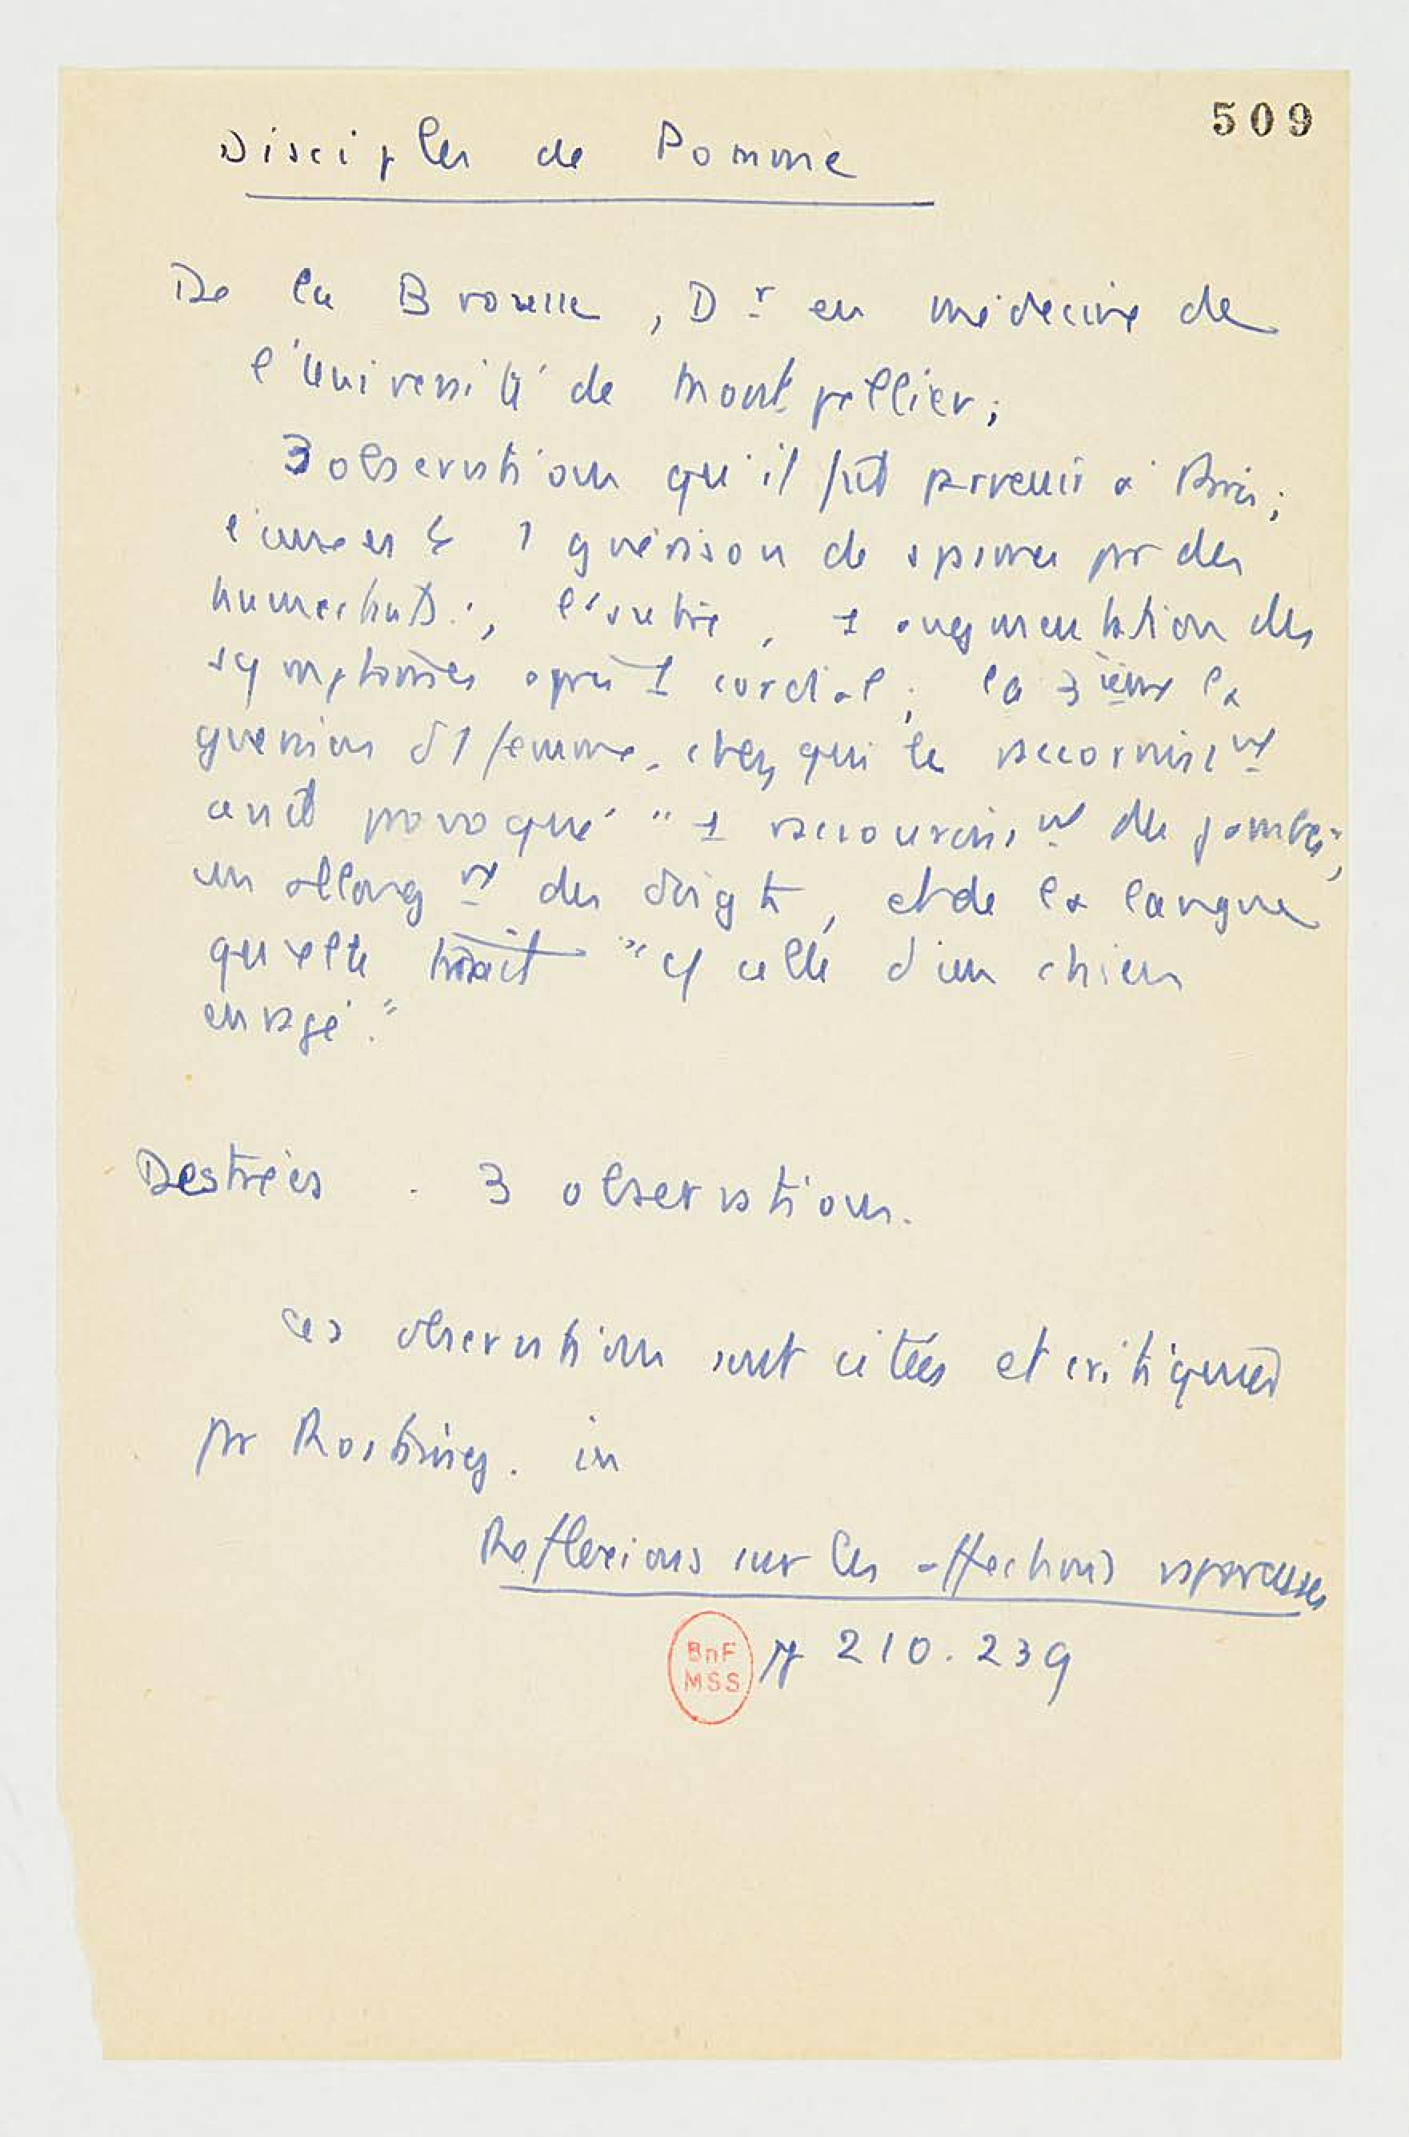 509
Disciples de Pomme
De la Brousse, Dr en médecine de
l'Université de Montpellier;
3 observations qu'il fit parvenir à Paris;
l'une est 1 guérison de spasmes par des
humectants, l'autre, 1 augmentation des
symptômes après 1 cordial; la 3ième la
guérison d'1 femme chez qui le
avait provoqué "1 raccourcisst des jambes,
un allongt des doigts, et de la langue
qu'elle tirait "cf celle d'un chien
enragé."
Destrées. 3 observations.
Ces observations sont citées et critiquées
par Rostaing. in
Réflexions sur les affections vaporeuses
pp 210.239
BnF
MSS